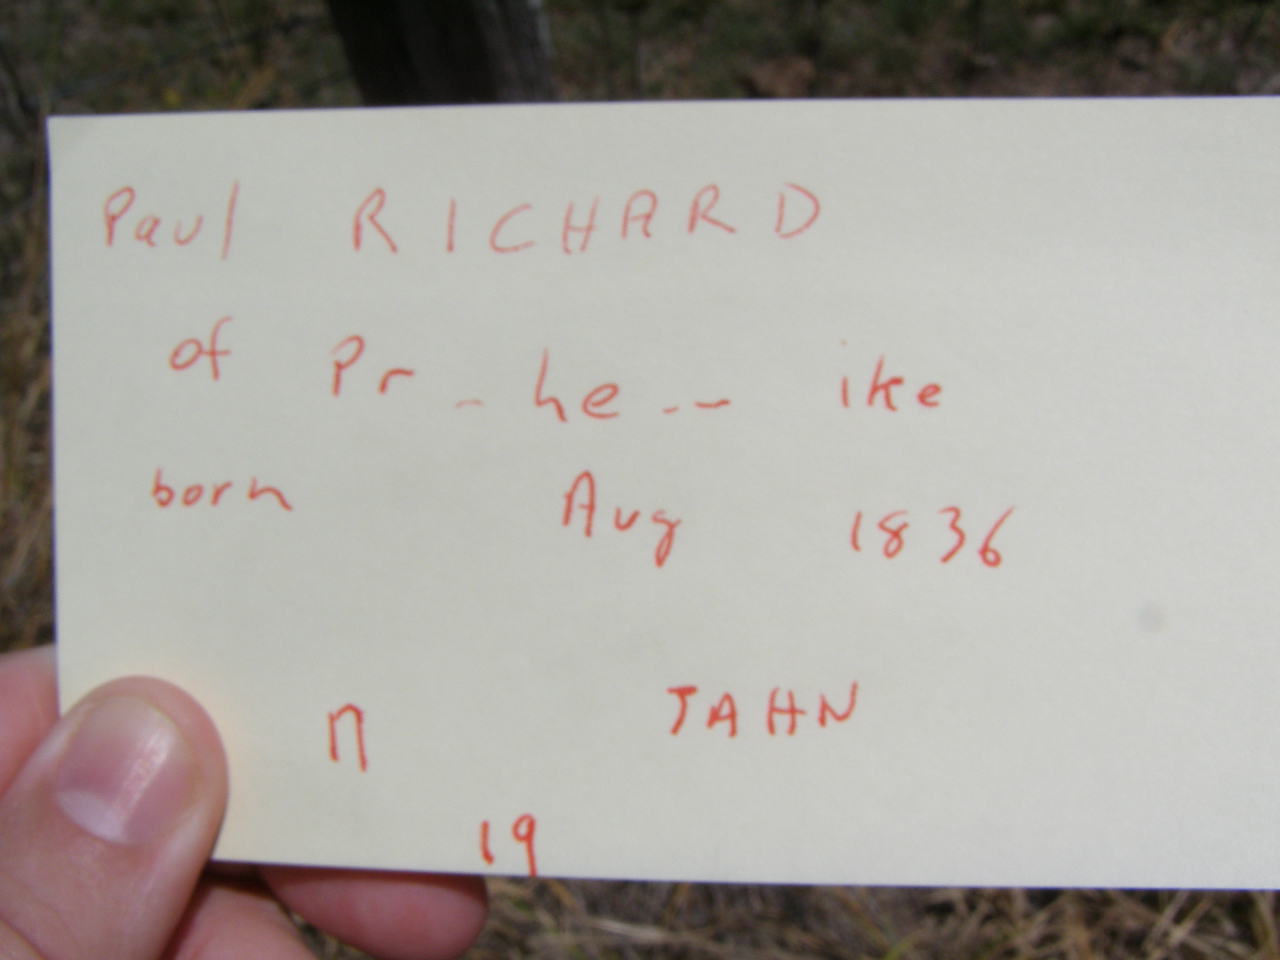 Paul RICHARD
of Pr_he.-- ike
born Aug 1836
n JAHN
19